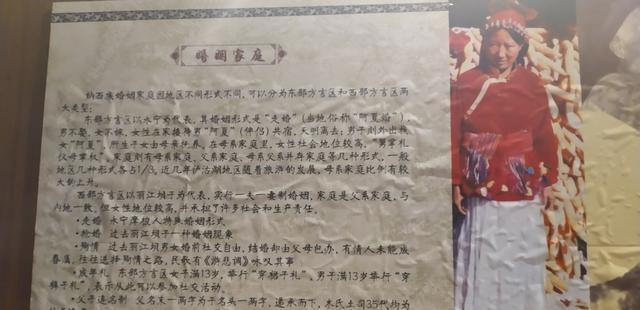 婚姻家庭
纳西族婚姻家庭因地区不同形式不同,可以分为东部方言区和西部方言区两
大类型:
东部方言区以永宁为代表,其婚姻形式是“走婚”(当地俗称“阿夏婚”),
男不娶,女不嫁,女性在家接待男“阿夏”(伴侣)共宿,天明离去;男子则外出找
女“阿夏”,所生子女由母亲抚养。在母系家庭里,女性社会地位较高,“舅掌礼
仪母掌权”。家庭则有母系家庭、父系家庭、母系父系并存家庭等几种形式,一般
地区几种形式各占1/3,近几年泸沽湖地区随着旅游的发展,母系家庭比例有较
大的上升。
西部方言区以丽江坝子为代表,实行一夫一妻制婚姻,家庭是父系家庭,与
内地一致,但女性地位较高,并承担了许多社会和生产责任。
•走婚 永宁摩梭人特殊婚姻形式
•抢婚 过去丽江坝子一种婚姻现象
•殉情 过去丽江坝男女婚前社交自由,结婚却由父母包办,有情人未能成
眷属,往往选择殉情之路,民歌有《游悲调》咏叹其事
•成年礼 东部方言区女子满13岁,举行“穿裙子礼”,男子满13岁举行“穿
裤子礼”,表示从此可以参加社交活动。
•父子连名制 父名末一两字为子名头一两字,递承而下,木氏土司35代均为